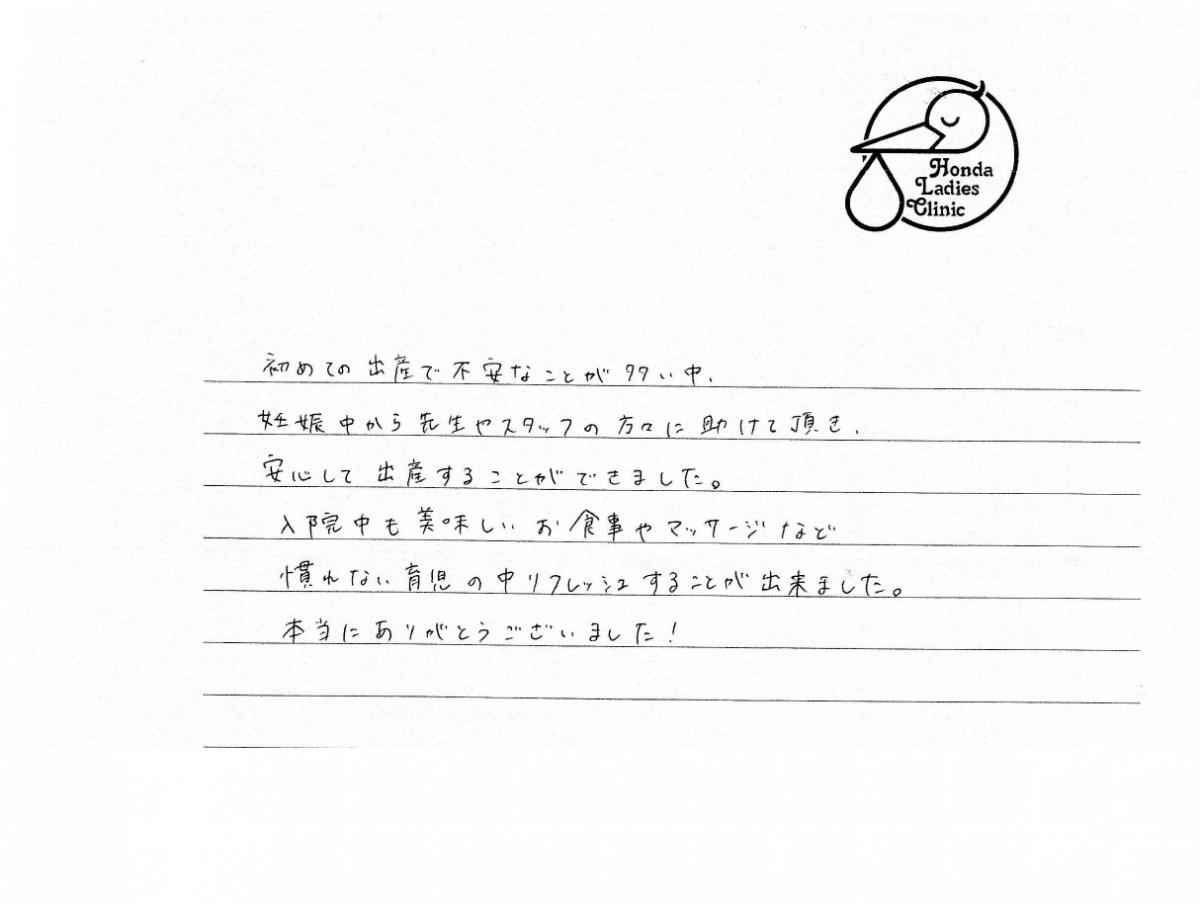 Honda
Ladies
Clinic
初めての出産で不安なことが多い中、
妊娠中から先生やスタッフの方々に助けて頂き、
安心して出産することができました。
入院中も美味しいお食事やマッサージなど
慣れない育児の中リフレッシュすることが出来ました。
本当にありがとうございました!